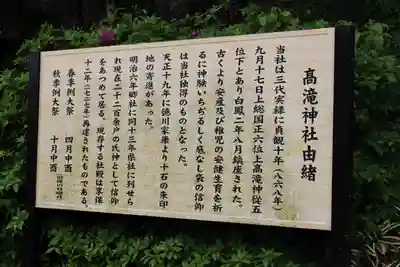 高滝神社由緒
当社は三代実録に貞観十年(八六八年)
九月十七日上総国正六位上高滝神従五
位下とあり白鳳二年八月鎮座された。
古くより安産及び稚児の安健生育を祈
るに神験いちぢるしく底なし袋の信仰
は当社独得のものとなった。
天正十九年に徳川家康より十石の朱印
地の寄進があった。
明治六年郷社に同十三年県社に列せら
れ現在二千二百余戸の氏神として信仰
をあつめて居る。現存する社殿は享保
十二年(一七二七年)再建されたものである。
春季例大祭 四月中酉
秋季例大祭 十月中酉